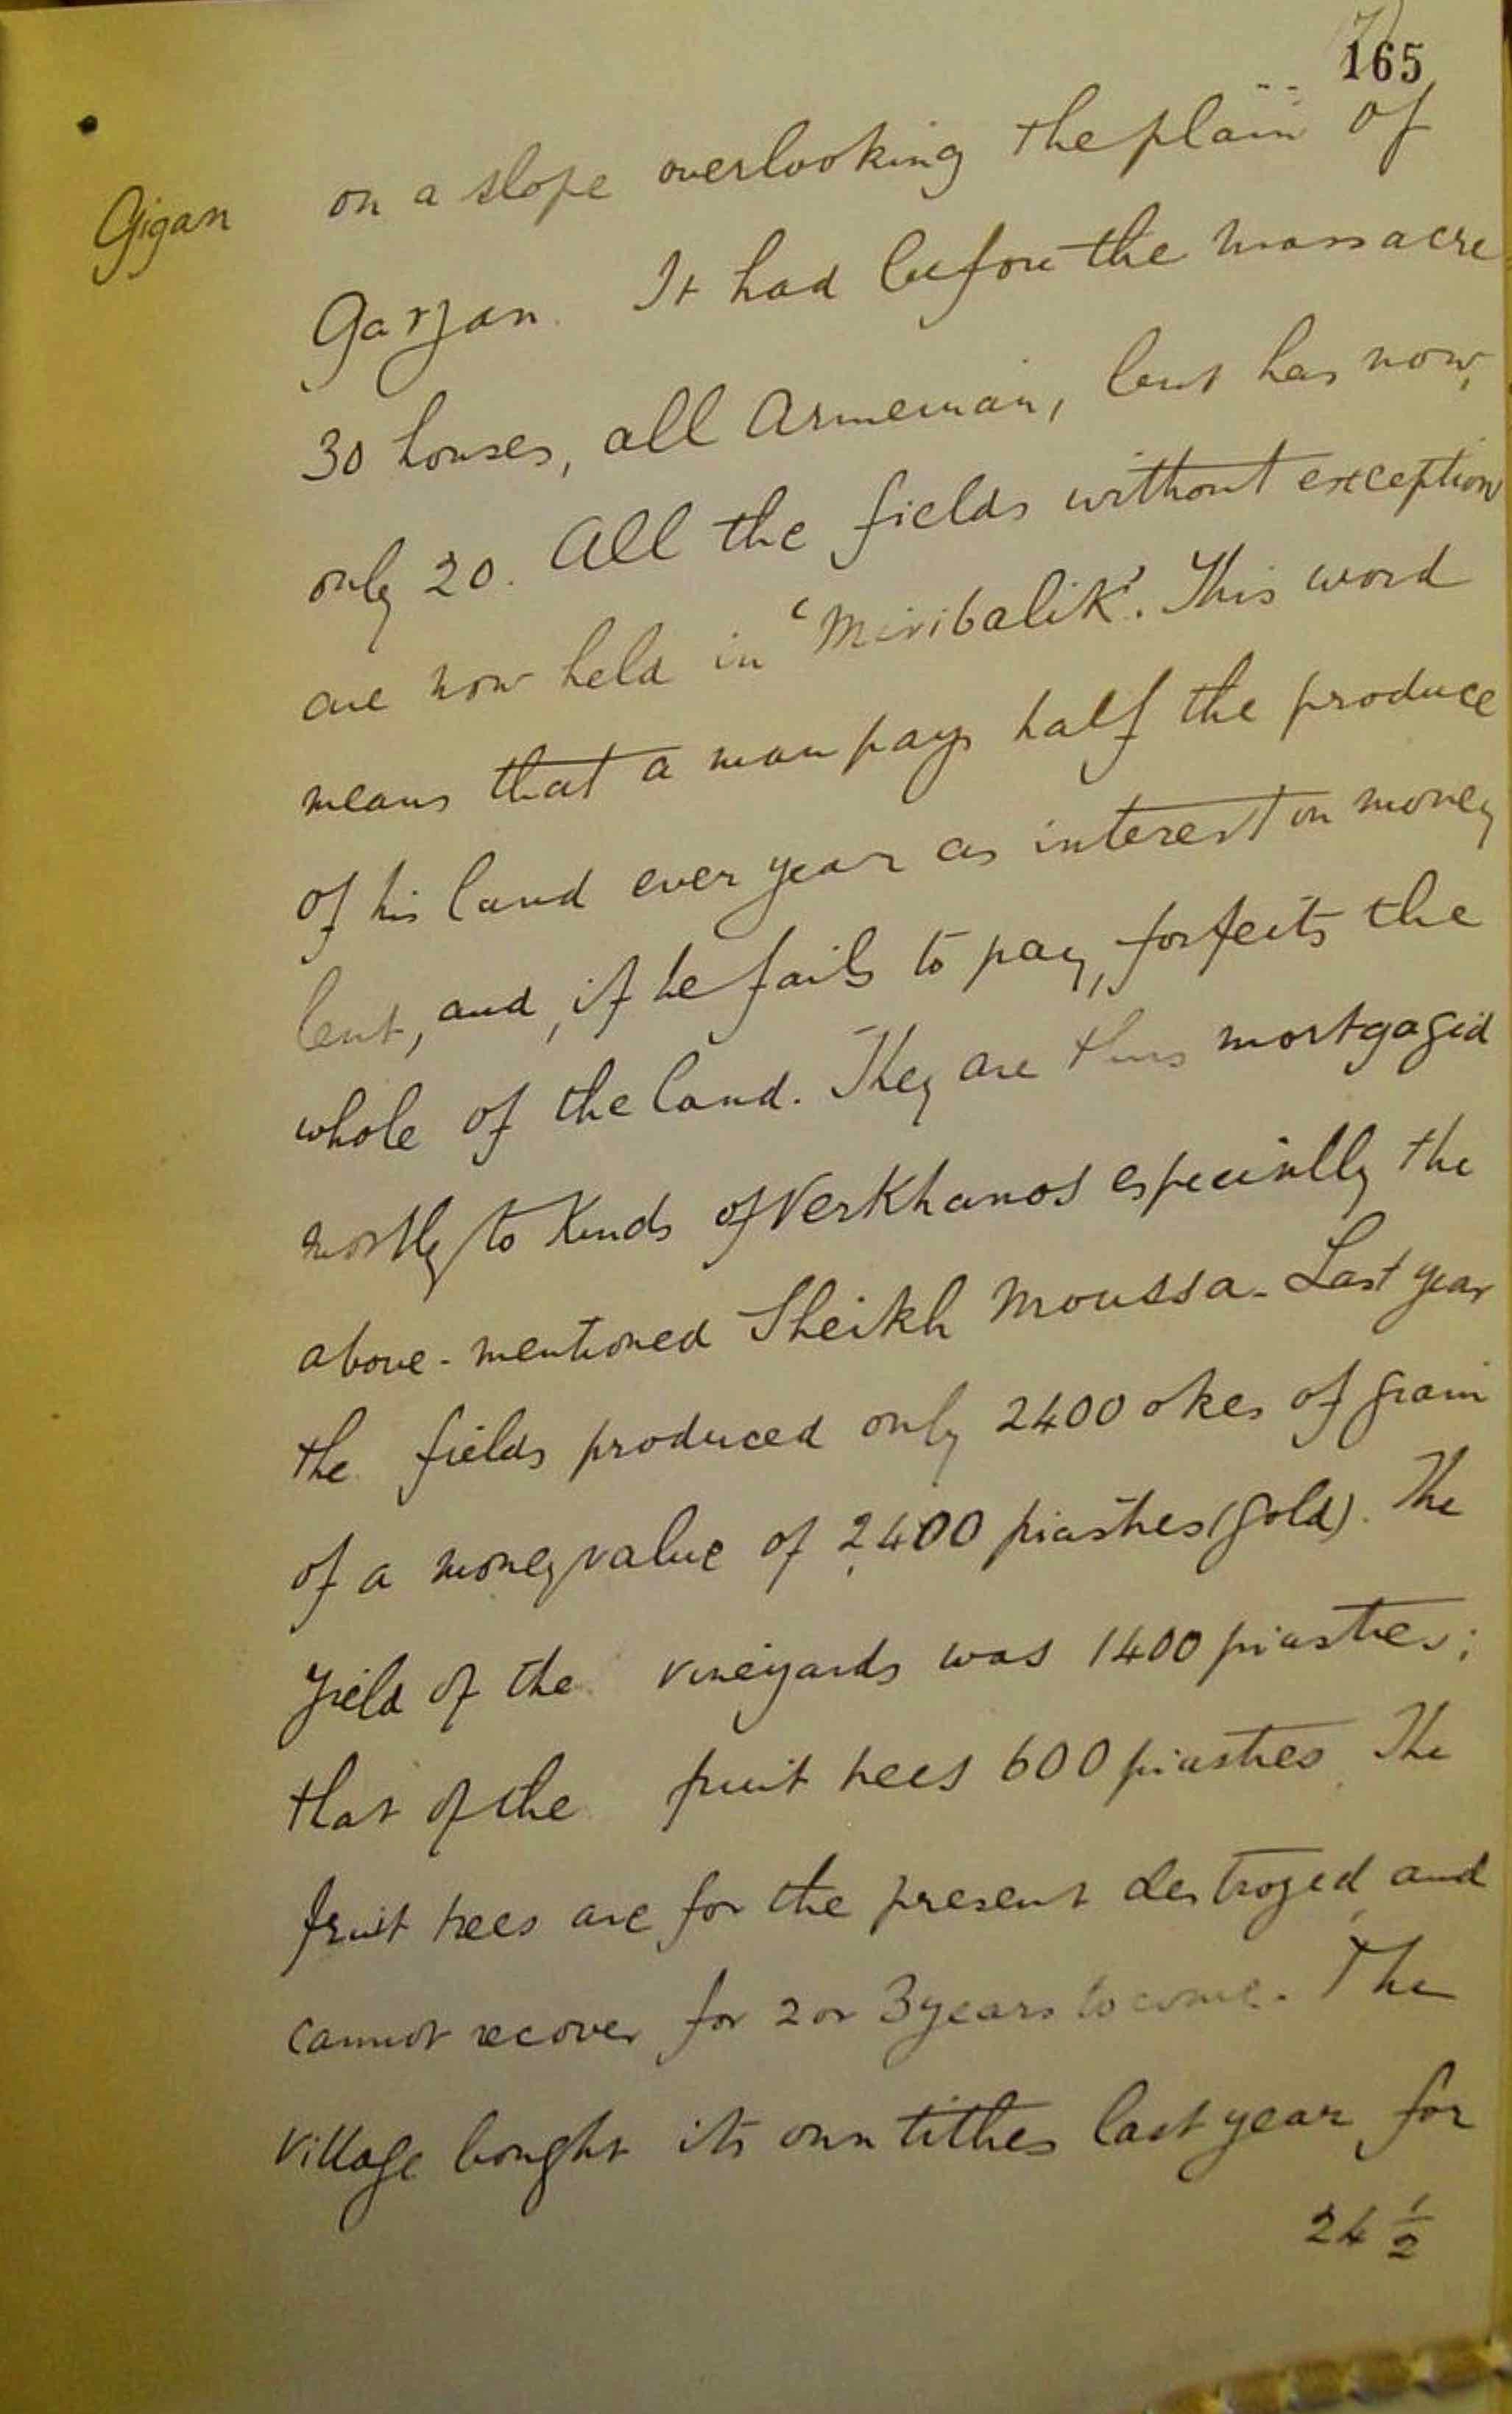 165
Gigan
on a slope overlooking the plain of
Garzan. It had before the massacre
30 houses, all Armenian, but has now,
only 20. All the fields without exception
are now held in 'Miribalik'. This word
means that a man pays half the produce
of his land ever year as interest on money
lent, and, if he fails to pay, forfeits the
whole of the land. They are thus mortgaged
mostly to Kurds of Verkhanos especially the
above-mentioned Sheikh Moussa. Last year
the fields produced only 2400 okes of grain
of a money value of 2400 piastres (gold). The
yield of the vineyards was 1400 piastres;
that of the fruit trees 600 piastres. The
fruit trees are for the present destroyed, and
cannot recover for 2 or 3 years to come. The
village bought its own tithes last year for
24 ½